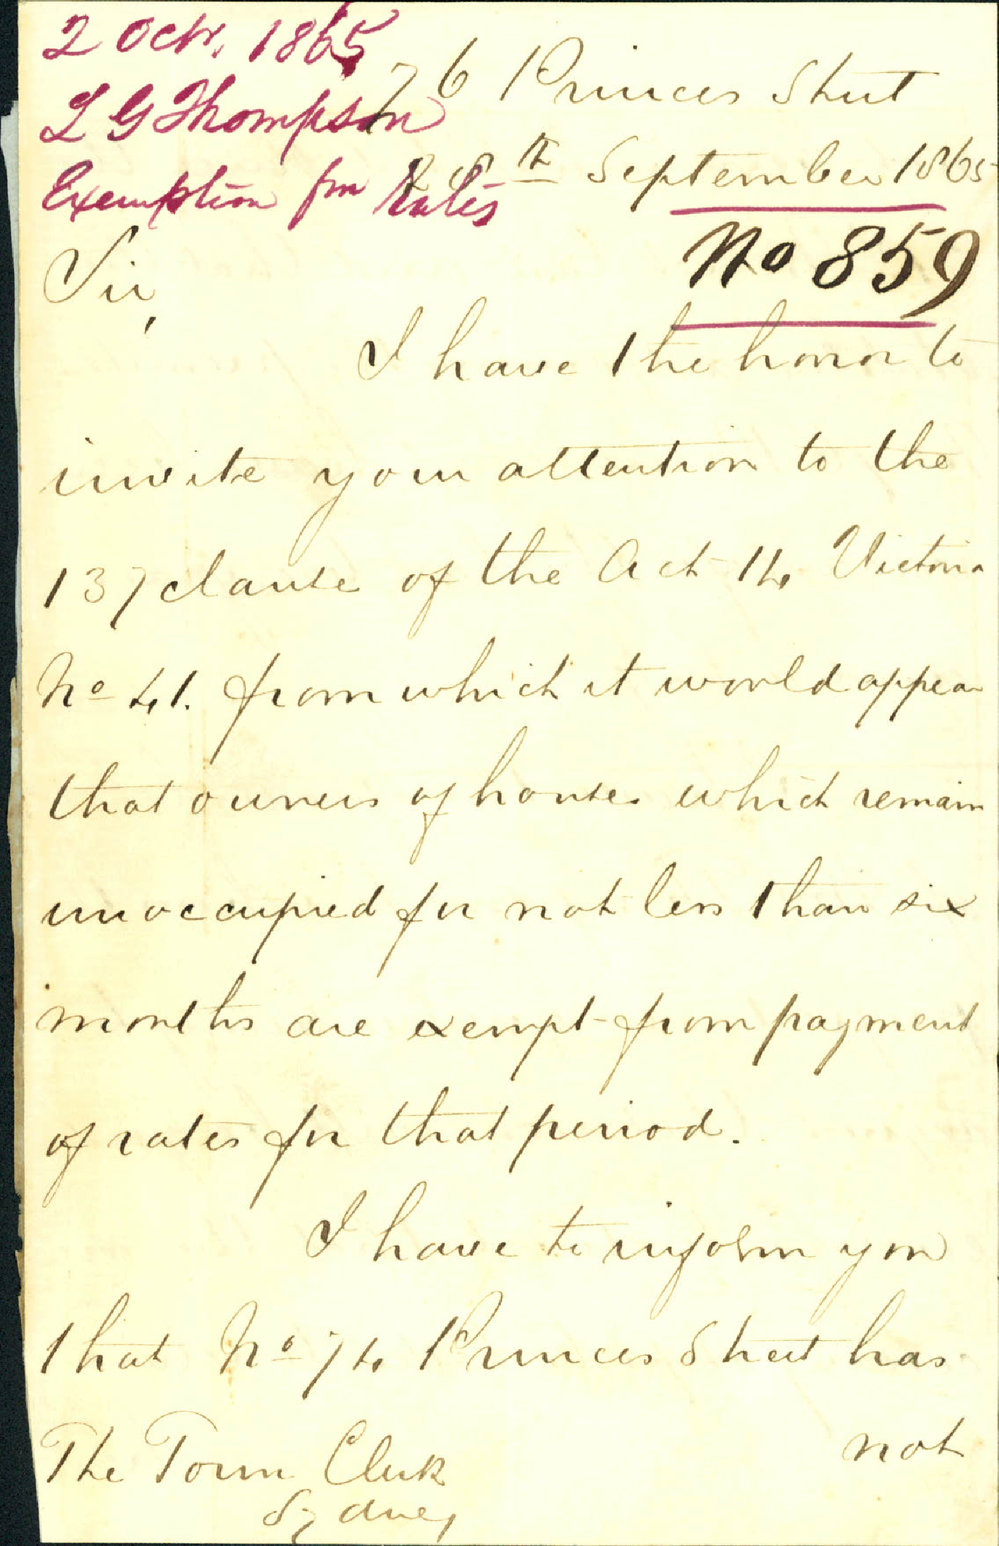 2 Octr. 1865
L G Thompson
Exemption fm Rates
76 Princes Street
28th September 1865
No 859
Sir,
I have the honor to
invite your attention to the
137 clause of the Act 14 Victoria
No 41. from which it would appear
that owners of houses which remain
unoccupied for not less than six
months are exempt from payment
of rates for that period.
I have to inform you
that No 74 Princes Street has
not
The Town Clerk
Sydney